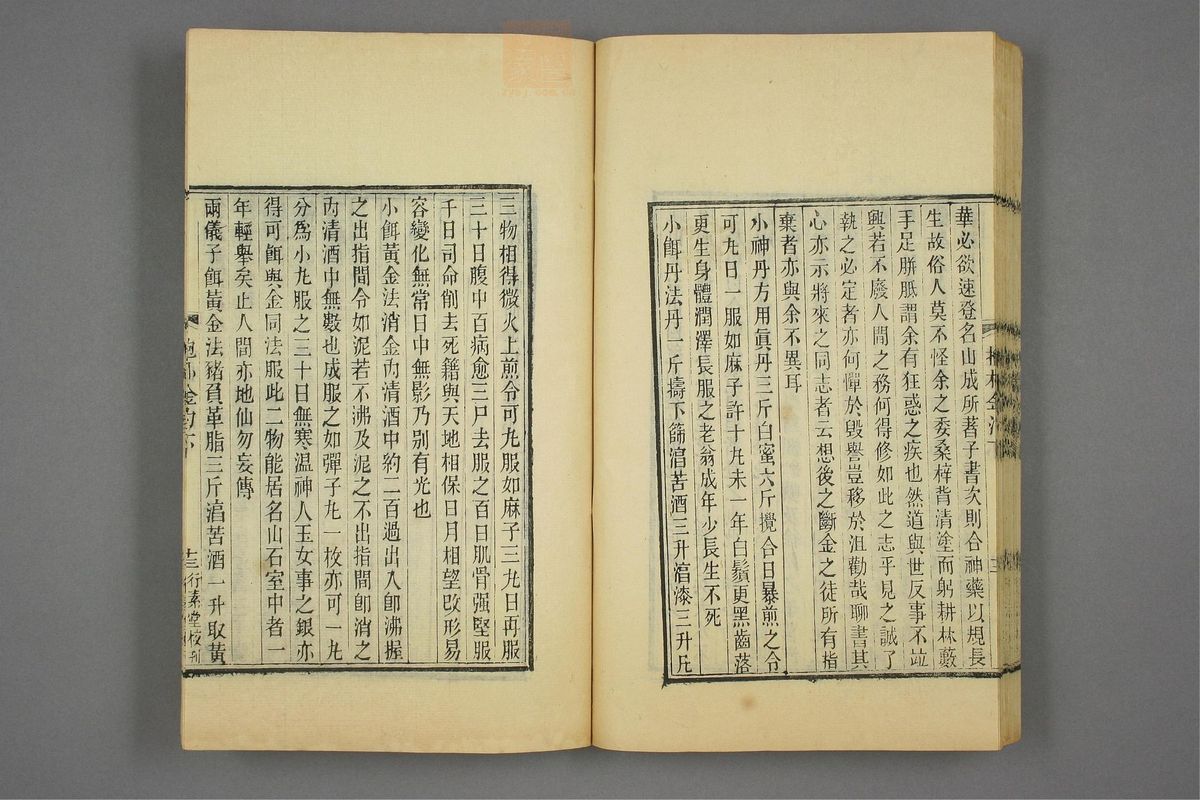 華必欲速登名山成所著子書次則合神藥以規長
生故俗人莫不怪余之委桑梓背清塗而躬耕林藪
手足胼胝謂余有狂惑之疾也然道與世反事不竝
興若不廢人間之務何得修如此之志乎見之誠了
執之必定者亦何憚於毀譽豈移於沮勸哉聊書其
心亦示將來之同志者云想後之斷金之徒所有指
棄者亦與余不異耳
小神丹方用眞丹三斤白蜜六斤攪合日暴煎之令
可丸日一服如麻子許十丸未一年白鬚更黑齒落
更生身體潤澤長服之老翁成年少長生不死
小餌丹法丹一斤擣下篩淯苦酒三升淯漆三升凡
三物相得微火上煎令可丸服如麻子三丸日再服
三十日腹中百病愈三尸去服之百日肌骨强堅服
千日司命削去死籍與天地相保日月相望改形易
容變化無常日中無影乃别有光也
小餌黃金法消金內清酒中約二百過出入卽沸握
之出指間令如泥若不沸及泥之不出指間卽消之
內清酒中無數也成服之如彈子丸一枚亦可一丸
分爲小丸服之三十日無寒温神人玉女事之銀亦
得可餌與金同法服此二物能居名山石室中者一
年輕舉矣止人間亦地仙勿妄傳
兩儀子餌黃金法豬負革脂三斤淯苦酒一升取黃
行素堂校刊